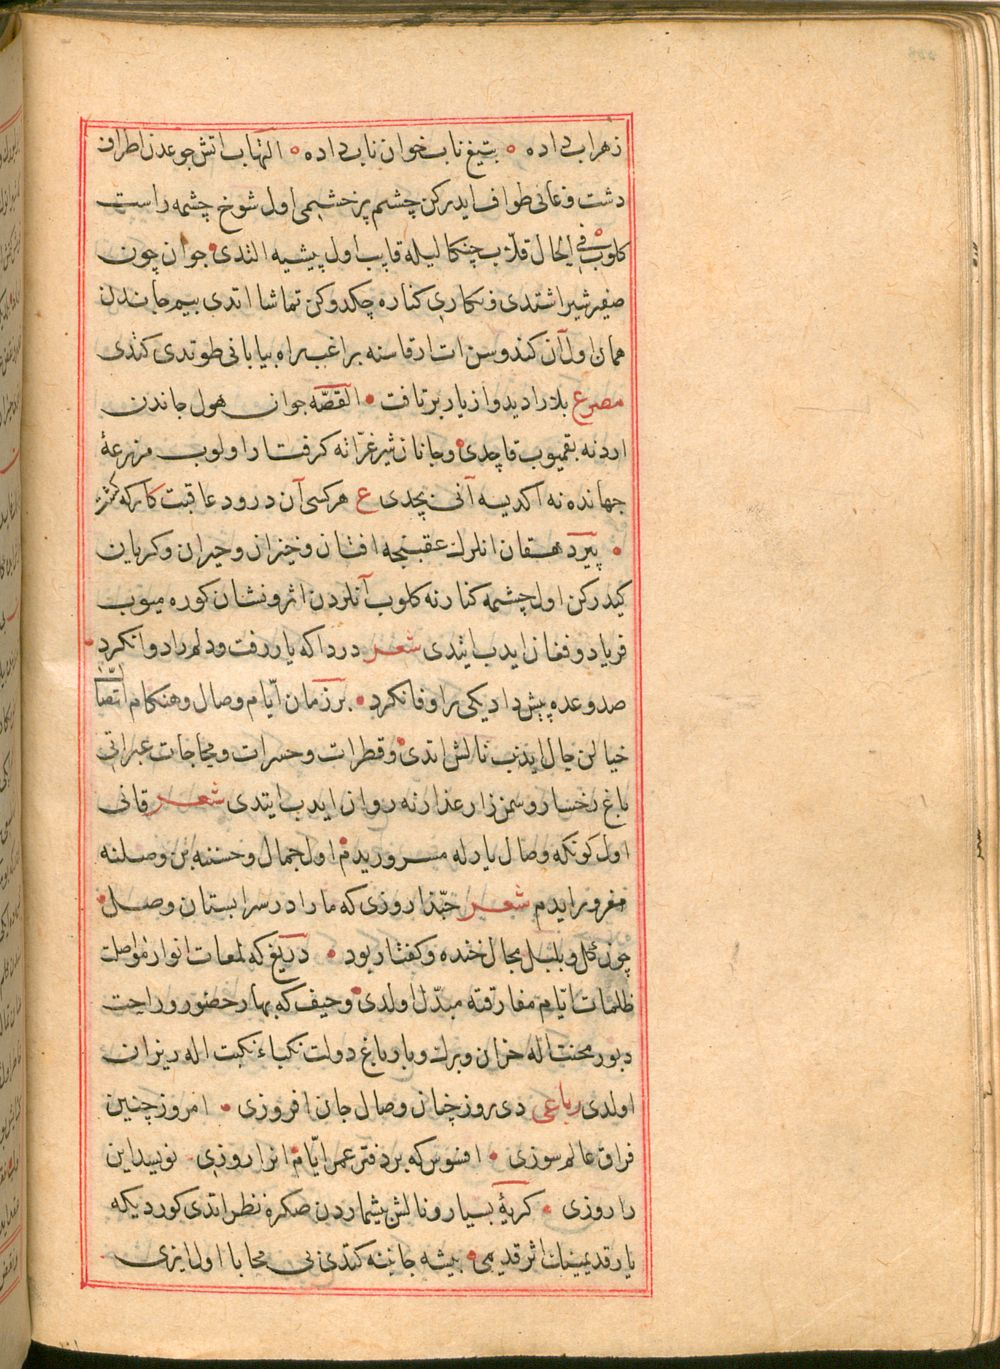 زهراب داده • بتیغ ناب خوان ناب داده • التهاب اتش جوعدن اطراف
دشت و غانی طواف ایدرکن چشم پر خشمی اول شوخ چشمه راست
کلوب فی الحال قلاب چنکالیله قاپب اول پیشیه التدی • جوان چون
صفیر شیر اشتدی و نکاری کناره چکدوکن تماشا اتدی بیم جاندن
همان اول آن کندوسن ات ارقاسنه براغب راه بیابانی طوتدی کتدی
مصرع بلا را دید و از یار برتافت • القصّه جوان هول جاندن
اردنه بقمیوب قاچدی • و جانان شیر غرّانه کرفتار اولوب مزرعهٔ
جهانده نه اکدیسه آنی بچدی ع هر کسی آن درود عاقبت کار که کشت
• پیر دهقان انلرك عقبنجه افتان و خیزان و حیران و کریان
کیدرکن اول چشمه کنارنه کلوب آنلردن اثر و نشان کوره میوب
فریاد و فغان ایدب ایتدی شعر دردا که یار رفت و دلم را دوا نکرد •
صد وعده پیش داد یکی را وفا نکرد • بر زمان ایّام وصال و هنکام اتّصال
خیالن جال ایدنب نالش اتدی • و قطرات و حسرات و مجاجات عبراتی
باغ رخسار و سمن زار عذارنه روان ایدب ایتدی شعر قانی
اول کونکه وصال یارله مسرور یدم • اول جمال و حسننه بن وصلنه
مغرور ایدم شعر حبّذا روزی که ما را در سرابستان وصل •
چون کل و بلبل بجال خنده و کفتار بود • دریغ که لمعات انوار مواصلت
ظلمات ایّام مفارقته مبدّل اولدی • و حیف که بهار حضور و راحت
دبور محنتاله خزان و برك و بار باغ دولت نکباء نکبت اله ریزان
اولدی رباعی دی روز چنان وصال جان افروزی • امروز چنین
فراق عالم سوزی • افسوس که بر دفتر عمر ایّام • انرا روزی نویسد این
را روزی • کریهٔ بسیار و نالش بیشماردن صکره نظر اتدی کوردیکه
یار قدیمینك اثر قدیمی • بیشه جانبنه کتدی بی محابا اول ایزی